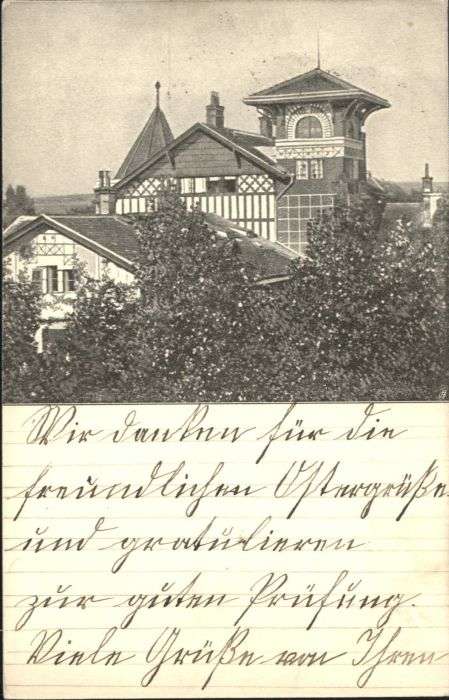 Wir danken für die
freundlichen Ostergrüße
und gratulieren
zur guten Prüfung.
Viele Grüße von Ihren